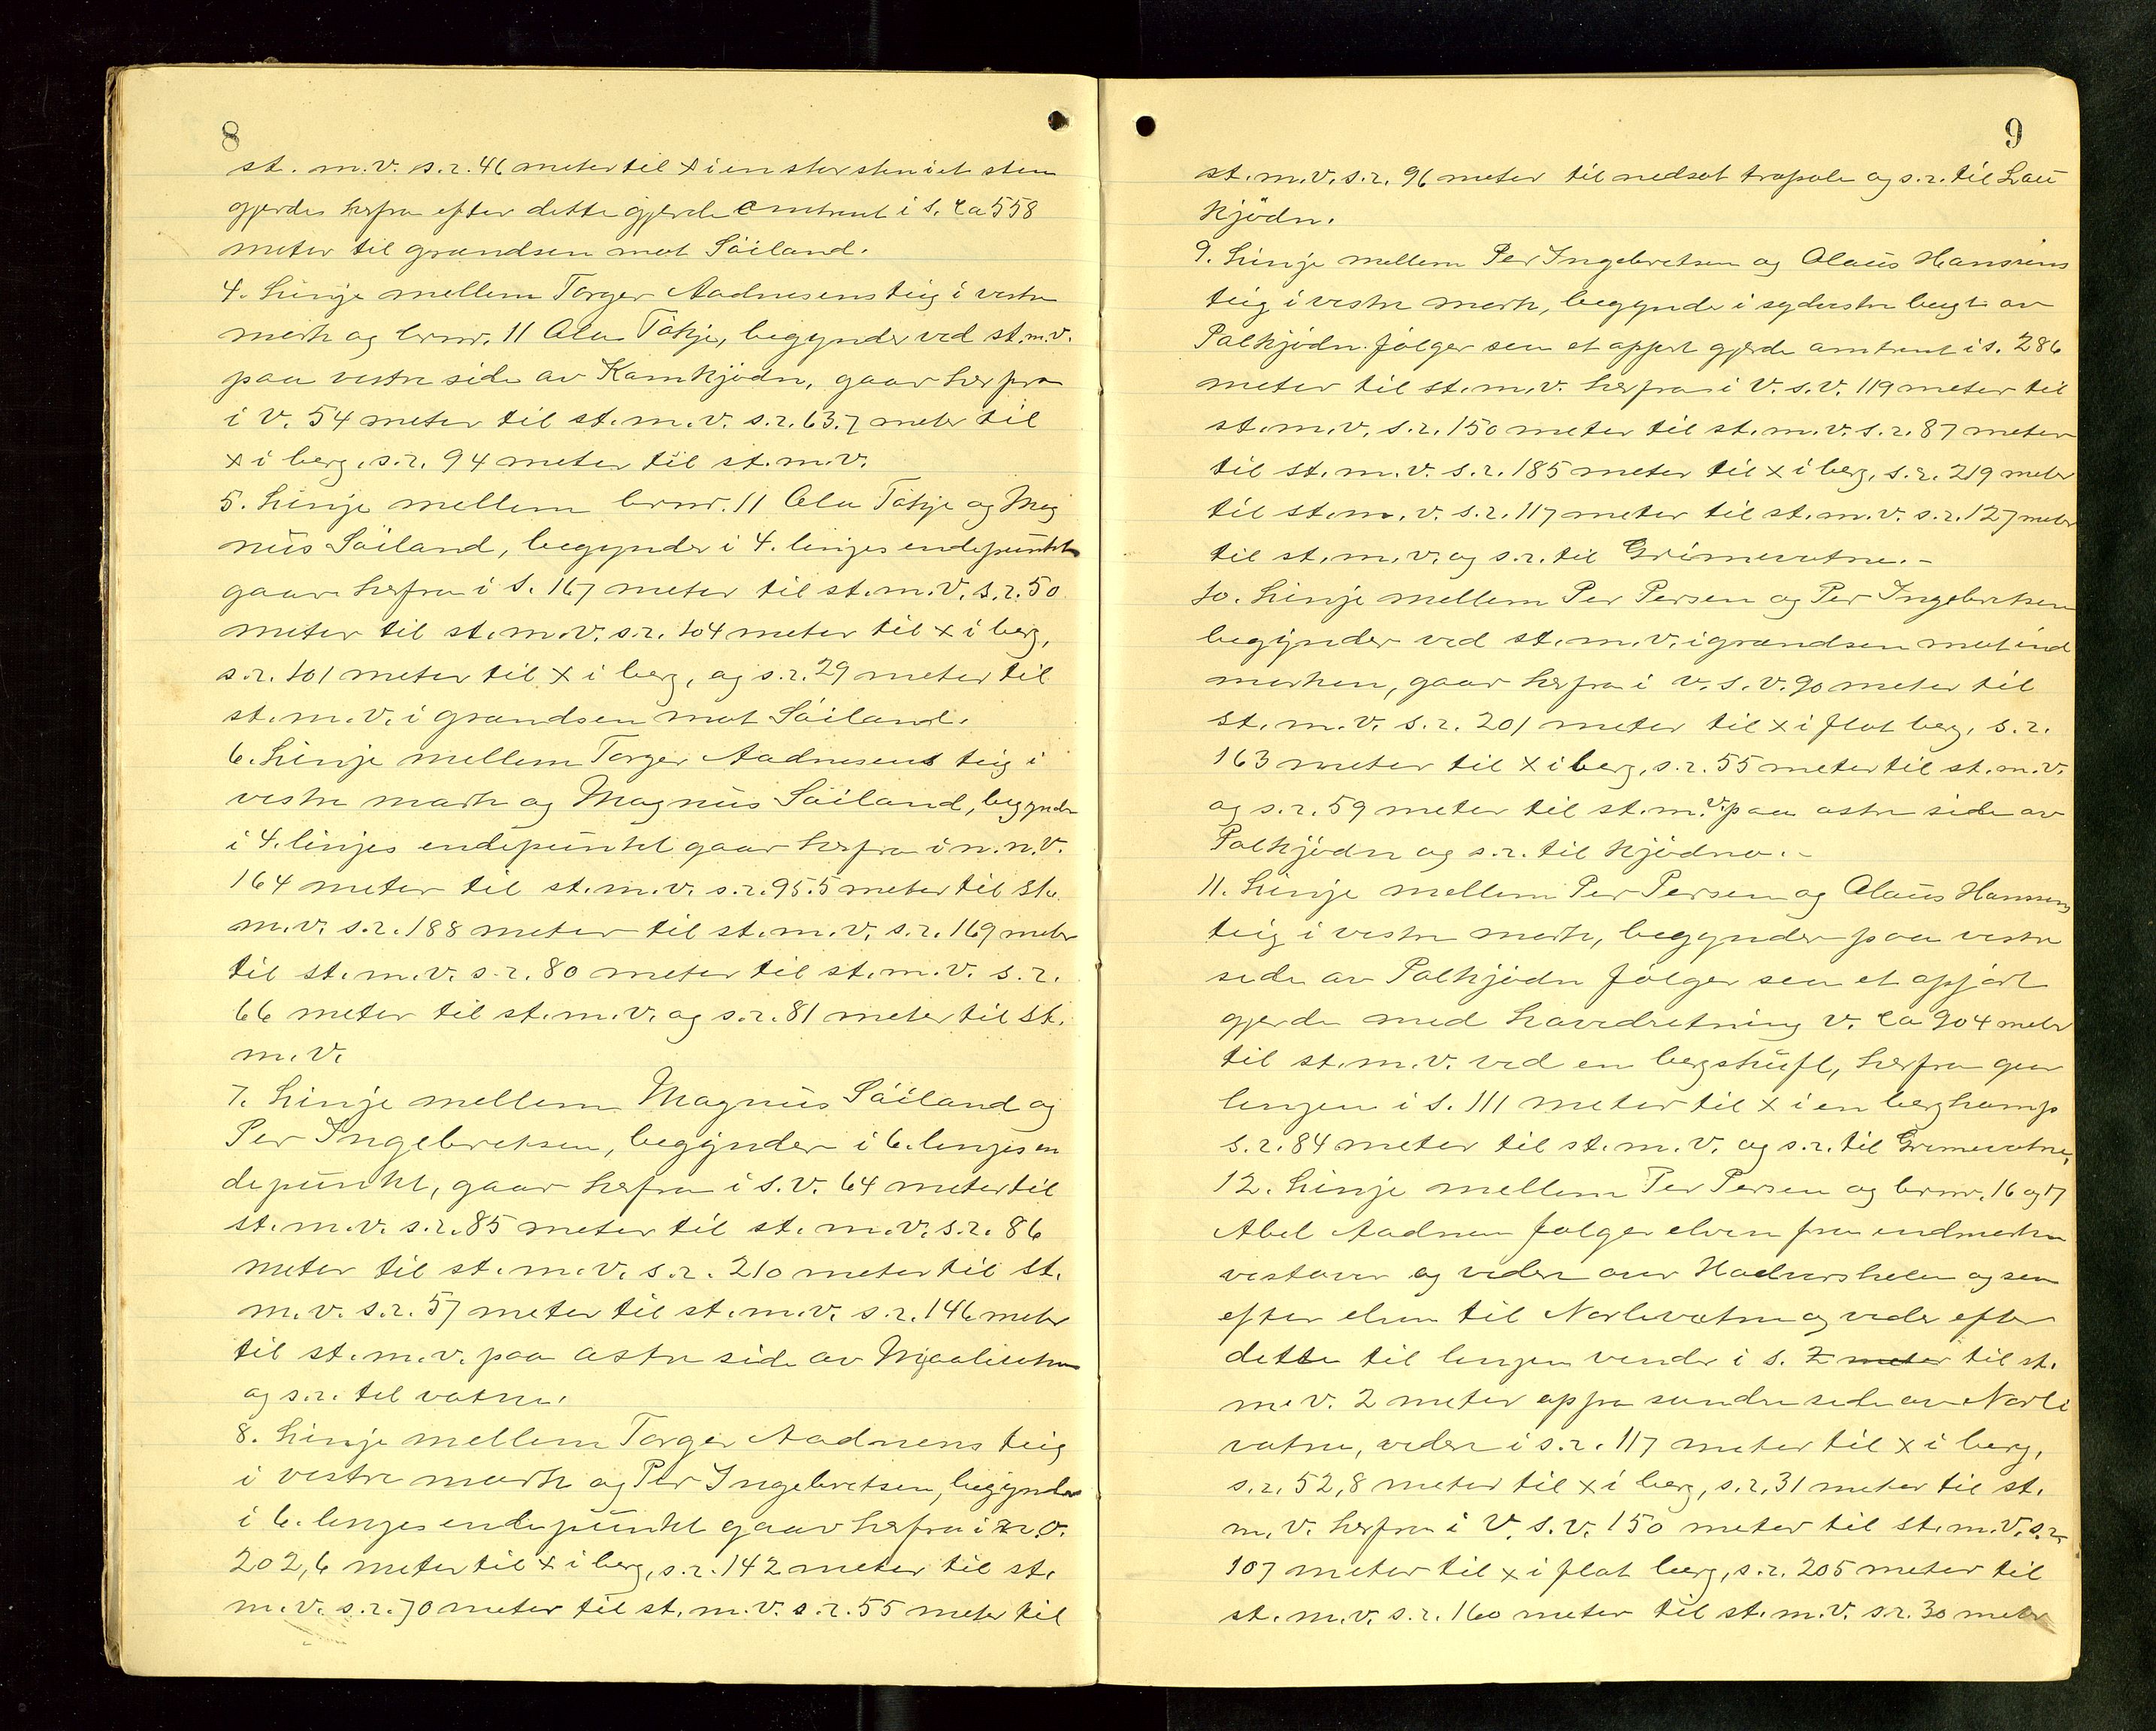 8
st. m. v. s. r. 46 meter til x i en stor sten i et sten
gjerde herfra efter dette gjerde omtrent i S. ca 558
meter til grændsen mot Söiland.
4. Linje mellem Torger Aadnesens teig i vestre
mark og brnr. 11 Ola Tökje, begynder ved st. m. v.
paa vestre side av Kamkjödn, gaar herfra
i V. 54 meter til st. m. v. s. r. 63.7 meter til
x i berg, s. r. 94 meter til st. m. v.
5. Linje mellem brnr. 11 Ola Tökje og Mag
nus Söiland, begynder i 4. linjes endepunkt
gaar herfra i S. 167 meter til st. m. v. s. r. 50
meter til st. m. v. s. r. 104 meter til x i berg,
s. r. 101 meter til x i berg, og s. r. 29 meter til
st. m. v. i grændsen mot Söiland.
6. Linje mellem Torger Aadnesens teig i
vestre mark og Magnus Söiland, begynder
i 4. linjes endepunkt gaar herfra i n. n. v.
164 meter til st. m. v. s. r. 95.5 meter til st.
m. v. s. r. 188 meter til st. m. v. s. r. 169 meter
til st. m. v. s. r. 80 meter til st. m. v. s. r.
66 meter til st. m. v. og s. r. 81 meter til st.
m. v.
7. Linje mellem Magnus Söiland og
Per Ingebretsen, begynder i 6. linjes en
depunkt, gaar herfra i S. V. 64 meter til
st. m. v. s. r. 85 meter til st. m. v. s. r. 86
meter til st. m. v. s. r. 210 meter til st.
m. v. s. r. 57 meter til st. m. v. s. r. 146 meter
til st. m. v. paa östre side av
og s. r. til vatne.
8. Linje mellem Torger Aadnens teig
i vestre mark og Per Ingebretsen, begynder
i 6. linjes endepunkt gaar herfra i
202,6 meter til x i berg, s. r. 142 meter til st.
m. v. s. r. 70 meter til st. m. v. s. r. 55 meter til
9
st. m. v. s. r. 96 meter til nedsat træpæle og s. r. til Lau
kjödn.
9. Linje mellem Per Ingebretsen og Olaus Hansens
teig i vestre mark, begynder i syderste bugt av
Palkjödn følger sen et oppört gjerde omtrent i S. 286
meter til st. m. v. herfra i V. S. V. 119 meter til
st. m. v. s. r. 150 meter til st. m. v. s. r. 87 meter
til st. m. v. s. r. 185 meter til x i berg, s. r. 219 meter
til st. m. v. s. r. 117 meter til st. m. v. s. r. 127 meter
til st. m. v. og s. r. til Grimevatne.-
10. Linje mellem Per Persen og Per Ingebretsen
begynder ved st. m. v. i grændsen mot ind
marken, gaar herfra i V. S. V. 90 meter til
st. m. v. s. r. 201 meter til x i flat berg, s. r.
163 meter til x i berg, s. r. 55 meter til st. m. v.
og s. r. 59 meter til st. m. v. paa östre side av
Palkjödn og s. r. til kjödno.-
11. Linje mellem Per Persen og Olaus Hansens
teig i vestre mark, begynder paa vestre
side av Palkjödn følger sen et opfört
gjerde med hovedretning V. ca 904 meter
til st. m. v. ved en bergskuft, herfra gaar
lingen i S. 111 meter til x i en berghamp
s. r. 84 meter til st. m. v. og s. r. til Grimevatne,
12. Linje mellem Per Persen og brnr. 16 og 17
Abel Aadnen følger elven fra indmarken
vestover og videre over og sen
efter elven til Norlivatne og vider efter
dette til lingen vender i S. 2 meter til st.
m. v. 2 meter op fra søndre side av Norli
vatne, videre i s. r. 117 meter til x i berg,
s. r. 52,8 meter til x i berg, s. r. 31 meter til st.
m. v. herfra i V. S. V. 150 meter til st. m. v. s. r.
107 meter til x i flat berg, s. r. 205 meter til
st. m. v. s. r. 160 meter til st. m. v. s. r. 30 meter